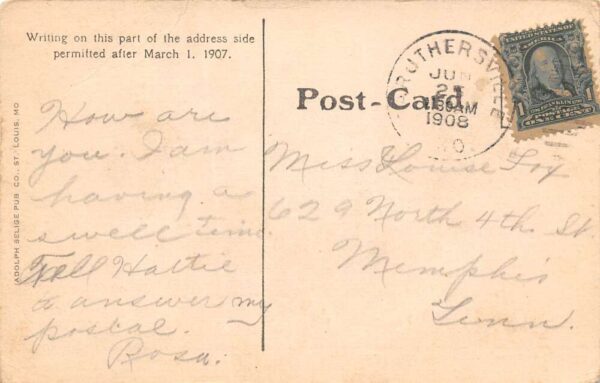 Writing on this part of the address side
permitted after March 1, 1907.
ADOLPH SELIGE PUB. CO., ST. LOUIS, MO
How are
you. I am
having a
swell time
Tell Hattie
to answer my
postal.
Rosa.
Post-Card
CARUTHERSVILLE
JUN
1908
MO.
UNITED STATES OF
AMERICA
1 FRANKLIN 1
ONE CENT
Miss Louise Fox
629 North 4th St
Memphis
Tenn.